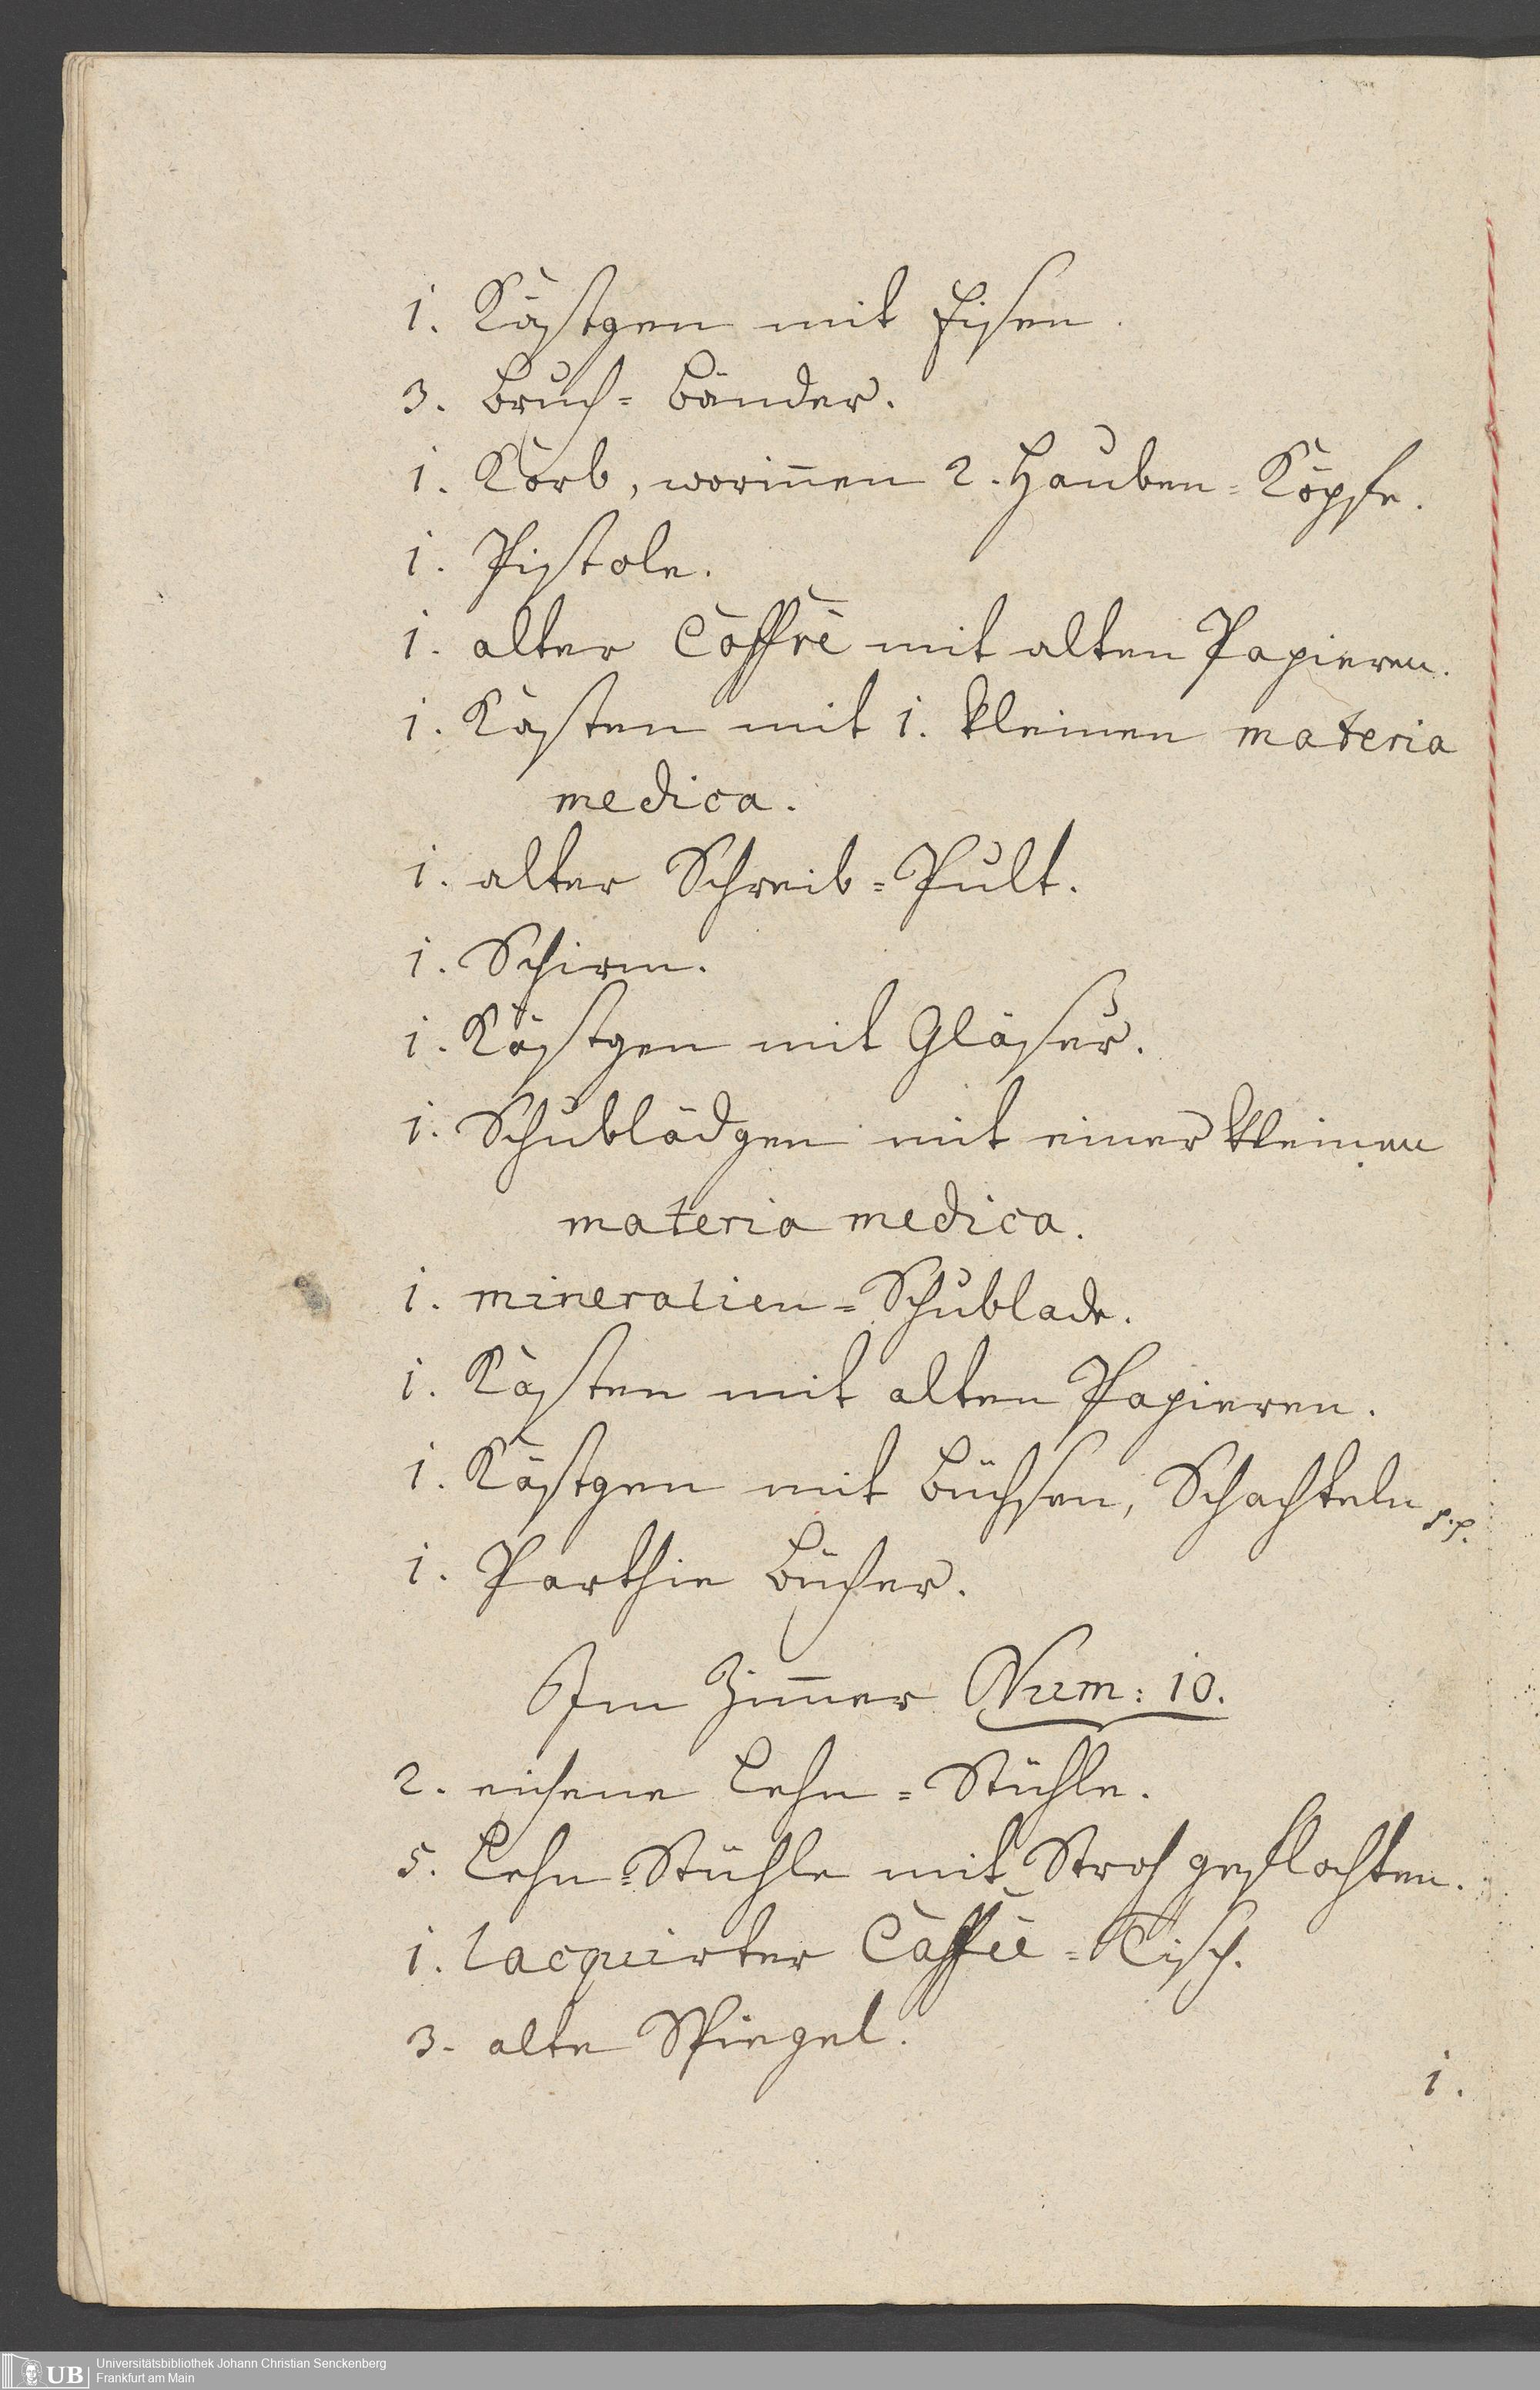 1. Kästgen mit Eisen.
3. Bruch= Bänder.
1. Korb, worinnen 2. Hauben=Köpfe.
1. Pistole.
1. alter Coffre mit alten Papieren.
1. Kasten mit 1. kleinen materia
medica.
1. alter Schreib=Pult.
1. Schirm.
1. Kästgen mit Gläser.
1. Schublädgen mit einer kleinen
materia medica.
1. mineralien=Schublade.
1. Kasten mit alten Papieren.
1. Kästgen mit Büchsen, Schachteln p.p.
1. Parthie Bücher.
Im Zimmer Num: 10.
2. eichene Lehn=Stühle.
5. Lehn=Stühle mit Stroh geflochten.
1. lacquirter Caffée=Tisch.
3. alte Spiegel.
1.
UB
Universitätsbibliothek Johann Christian Senckenberg
Frankfurt am Main